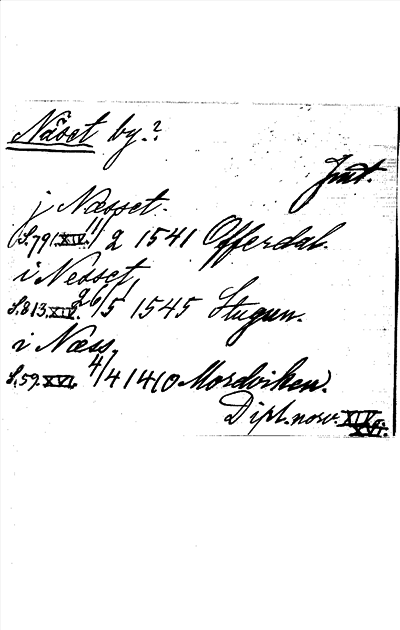 Näset by.?
Jmt.
j Næsset.
S.791.XIV. 11/2 1541 Offerdal.
i Nesset
S.813.XIV. 26/5 1545 Stugun.
i Næss,
S.59.XVI. 4/4 1410 Mordviken.
Dipl. norv. XIV.
XVI.